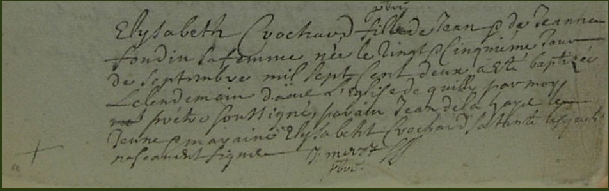 Elysabeth Crochard fille de Jean & de Jeanne
foudin sa femme, née le vingt & cinquiéme Jour
de septembre mil sept cent deux a esté baptizée
Le lendemain dans l'eglise de par moy
pretre soussigné, parain Jean de la Jeune & maraine Elysabeht Crochard sa tante lesquels
ne scavent signer